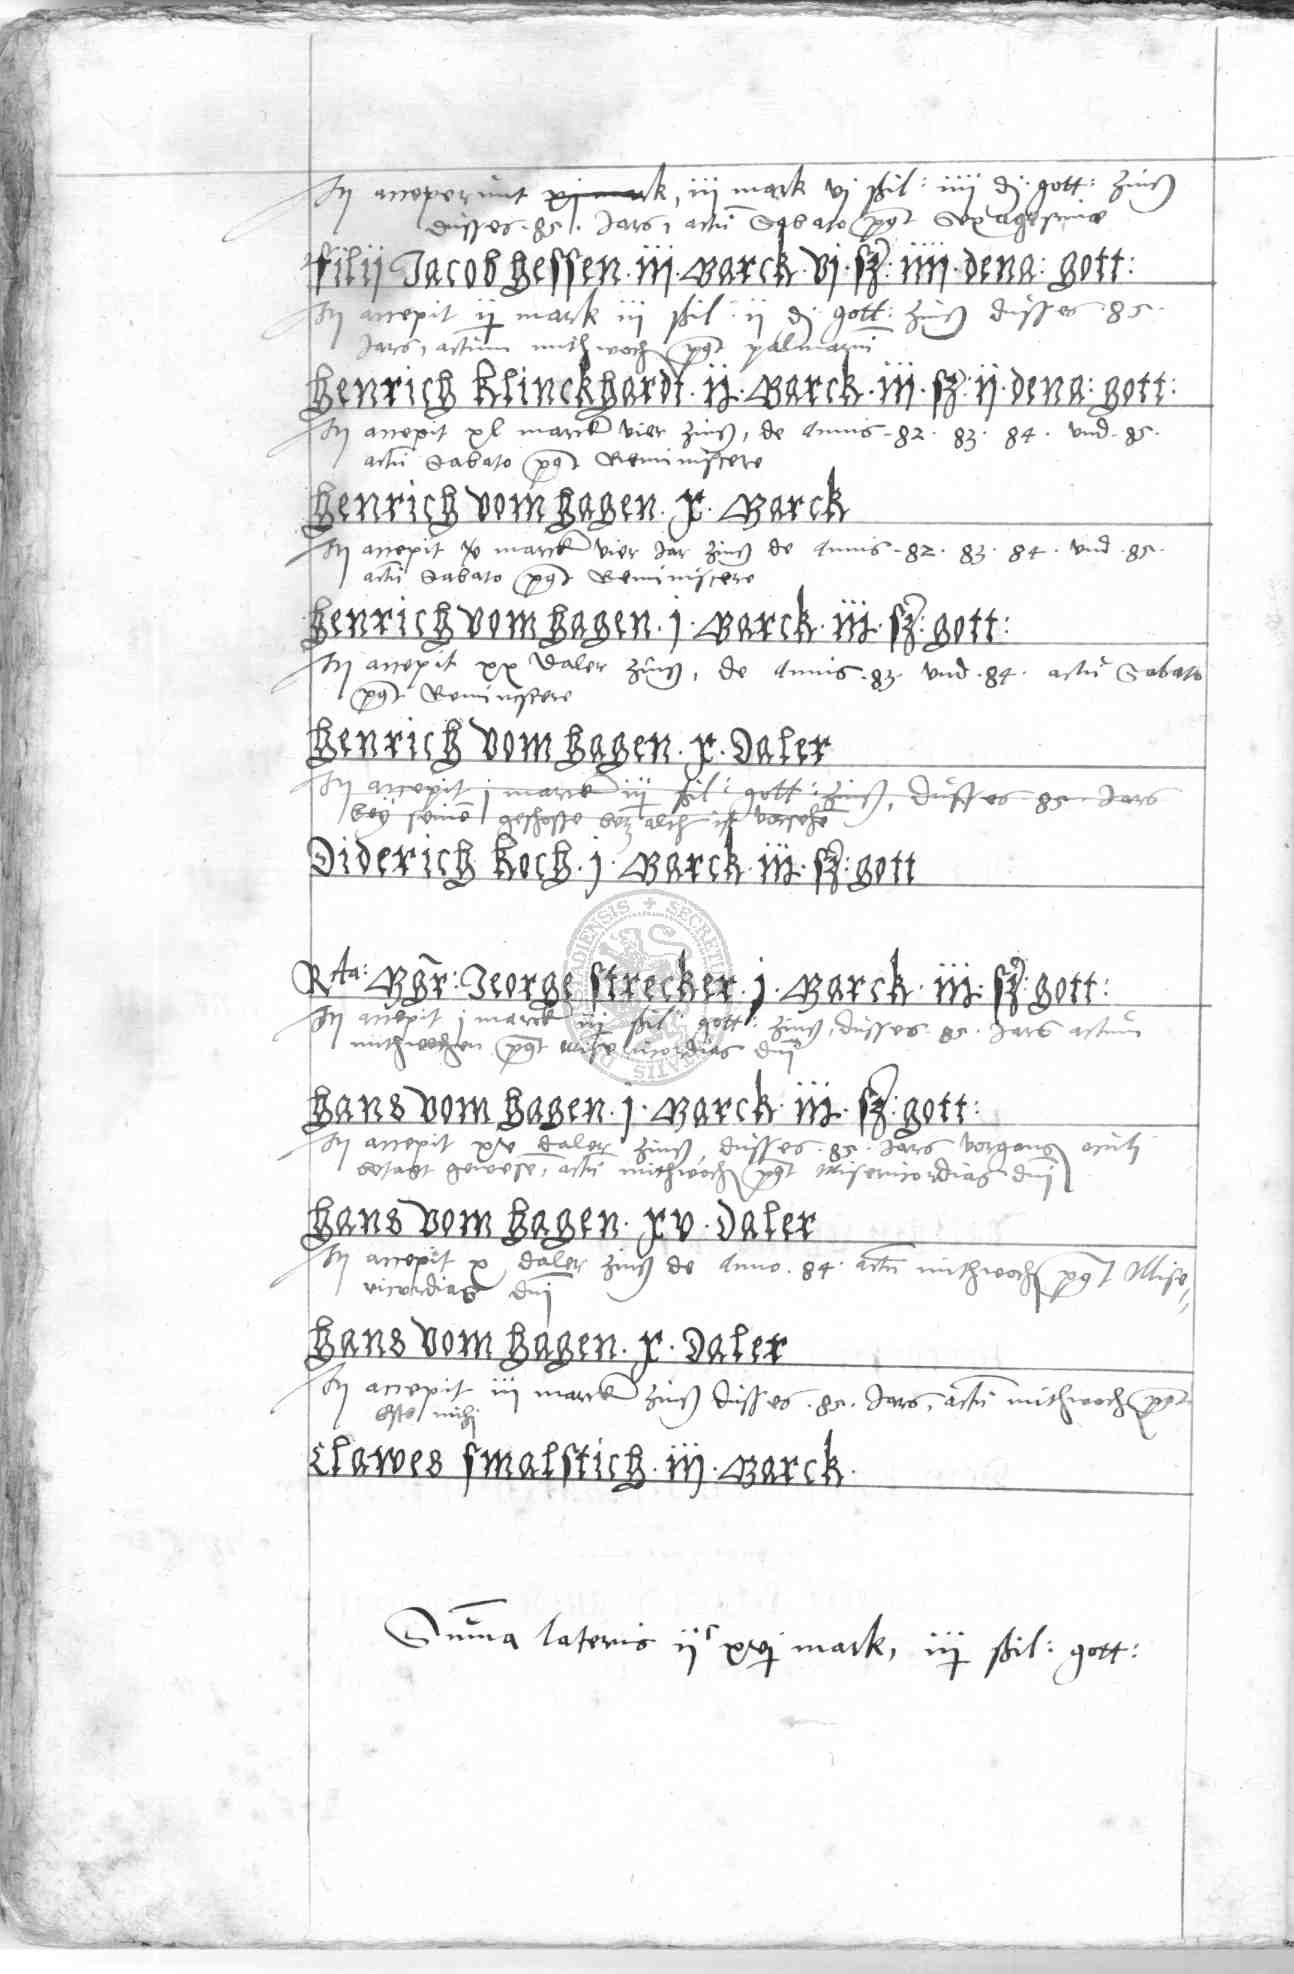 Hii acceperunt xj mark, iij mark vj ßil: iiij dj. gott: Zinß
dusses .85. Jars, actū Sabato pꝰt Sexagesimae
filij Jacob hessen. iij. Marck. vj. sz: iiij. dena: gott:
Hij accepit ij mark iij ßil: ij dj gott: Zinß dusses .85.
Jars, actum mithwoch pꝰt palmarum
henrich klinckhardt. ij. Marck. iij. sz: ij. dena: gott:
Hij accepit xl marck vier Zinß, de Annis .82. 83. 84. vnd .85.
actū Sabato pꝰt Reminiscere
henrich vom hagen. x. Marck
Hij accepit marck vier Jar Zinß de Annis .82. 83. 84. vnd .85.
actū Sabato pꝰt Reminiscere
henrich vom hagen. j. Marck. iij. sz: gott:
Hij accepit xx Daler Zinß, de Annis .83. vnd .84. actū Sabato
pꝰt Reminiscere
henrich vom hagen. x. Daler
Hij accepit j marck iij ßil: gott: Zinß, dusses 85. Jars
bey seinē geschosse
Diderich koch. j. Marck. iij. sz: gott
Rta: Bgr: Jeorge strecker. j. Marck. iij. sz: gott:
Hij accepit j marck iij ßil: gott: Zinß, dusses .85. Jars actum
mithwochen pꝰt misericordias dnī
hans vom hagen. j. Marck. iij. sz: gott:
Hij accepit xv daler Zinß, dusses .85. Jars vorgang oculi
betagt gewese, actū mithwoch pꝰt Misericordias dnī
hans vom hagen. xv. Daler
Hij accepit x daler Zinß de Anno .84. actū mithwoch pꝰt Mise,,
ricordias dnī
hans vom hagen. x. Daler
Hij accepit iij marck Zinß dusses .85. Jars, actū mithwoch pꝰt
Esto mihj
Clawes smalstich. iij. Marck.
SECRETUM
Sum̄a lateris ijᶜ xvj mark, iij ßil: gott: